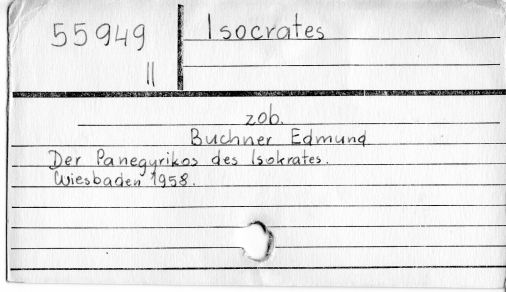 55949
II
Isocrates
zob.
Buchner Edmund
Der Panegyrikos des Isokrates.
Wiesbaden 1958.